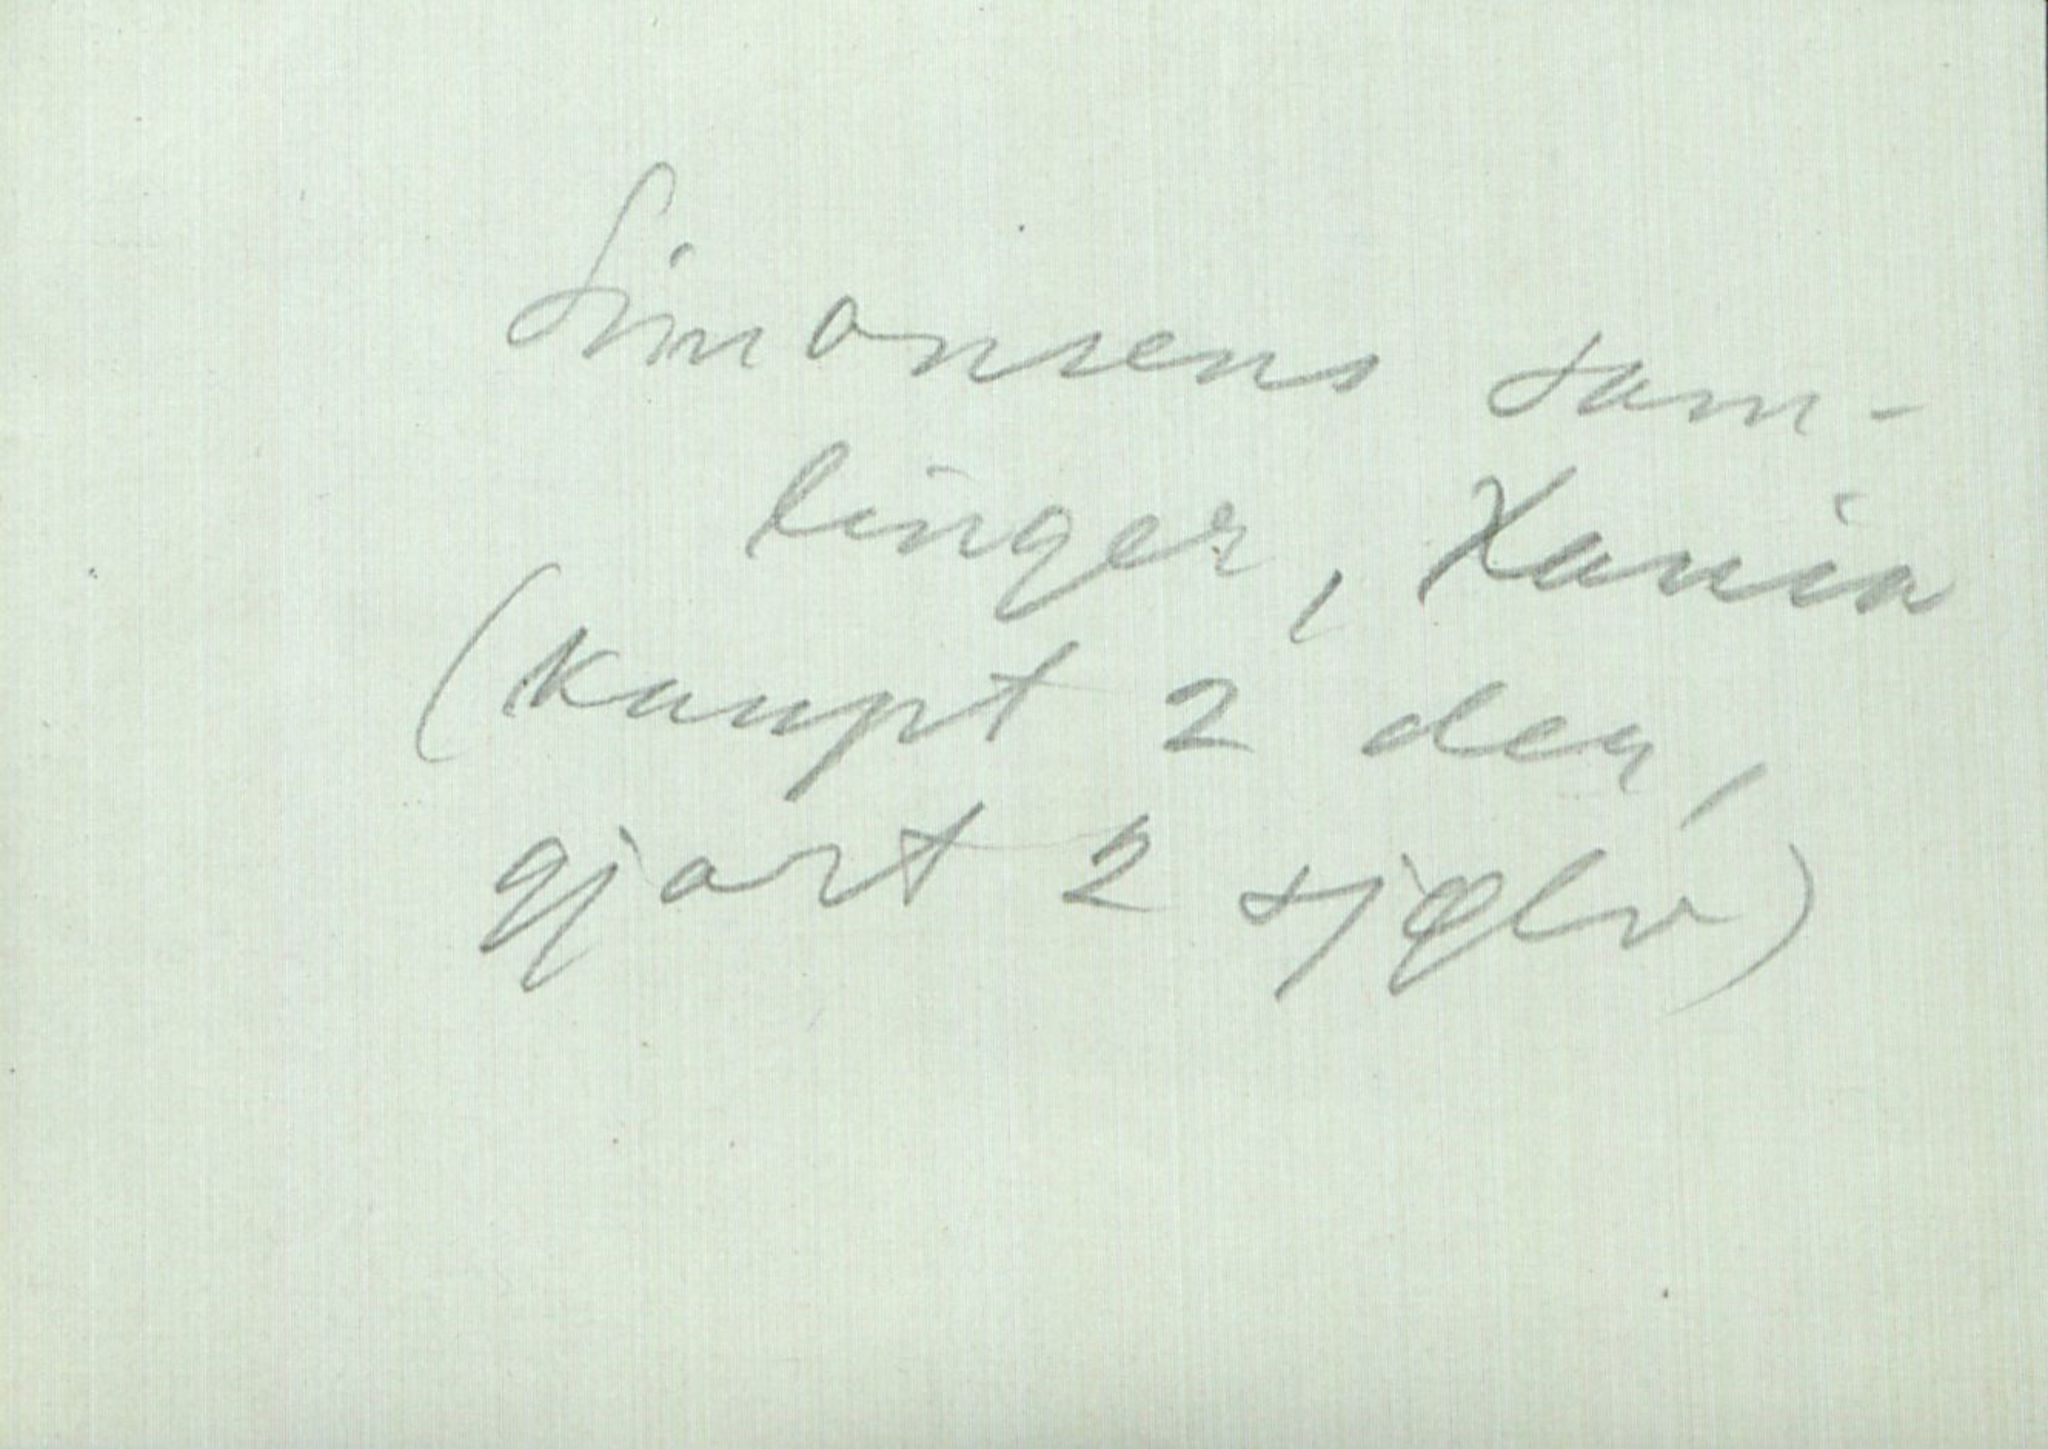 Simonsens sam-
linger, Xania
(kaupt 2 der,
gjort 2 sjølv)